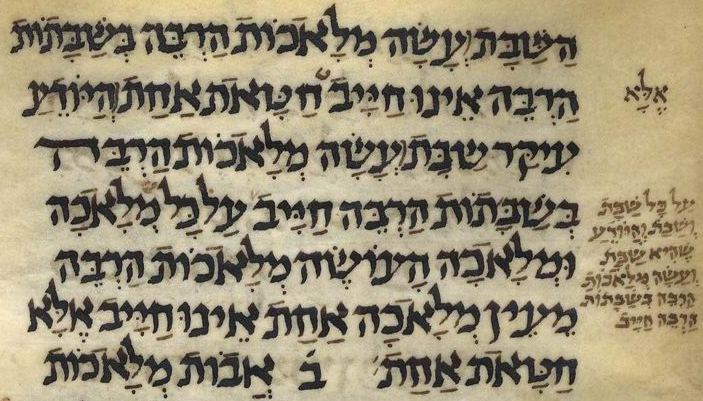 הַשַּׁבָּת וְעָשָׂה מְלָאכוֹת הַרְבֵּה בְּשַׁבָּתוֹת
הַרְבֵּה אֵינוּ חַיָּיב חַטָּאת אַחַת וְהַיּוֹדֵעַ
עִיקַּר שַׁבָּת וְעָשָׂה מְלָאכוֹת הַרְבֵּה
בְּשַׁבָּתוֹת הַרְבֵּה חַיָּיב עַל כָּל מְלָאכָה
וּמְלָאכָה הָעוֹשֶׂה מְלָאכוֹת הַרְבֵּה
מֵעֵין מְלָאכָה אַחַת אֵינוּ חַיָּיב אֶלָּא
חַטָּאת אַחַת ב אֲבוֹת מְלָאכוֹת
אֶלָּא
עַל כָּל שַׁבָּת
וְשַׁבָּת וְהַיּוֹדֵעַ
שֶׁהִיא שַׁבָּת
וְעָשָׂה מְלָאכוֹת
הַרְבֵּה בְּשַׁבָּתוֹת
הַרְבֵּה חַיָּיב